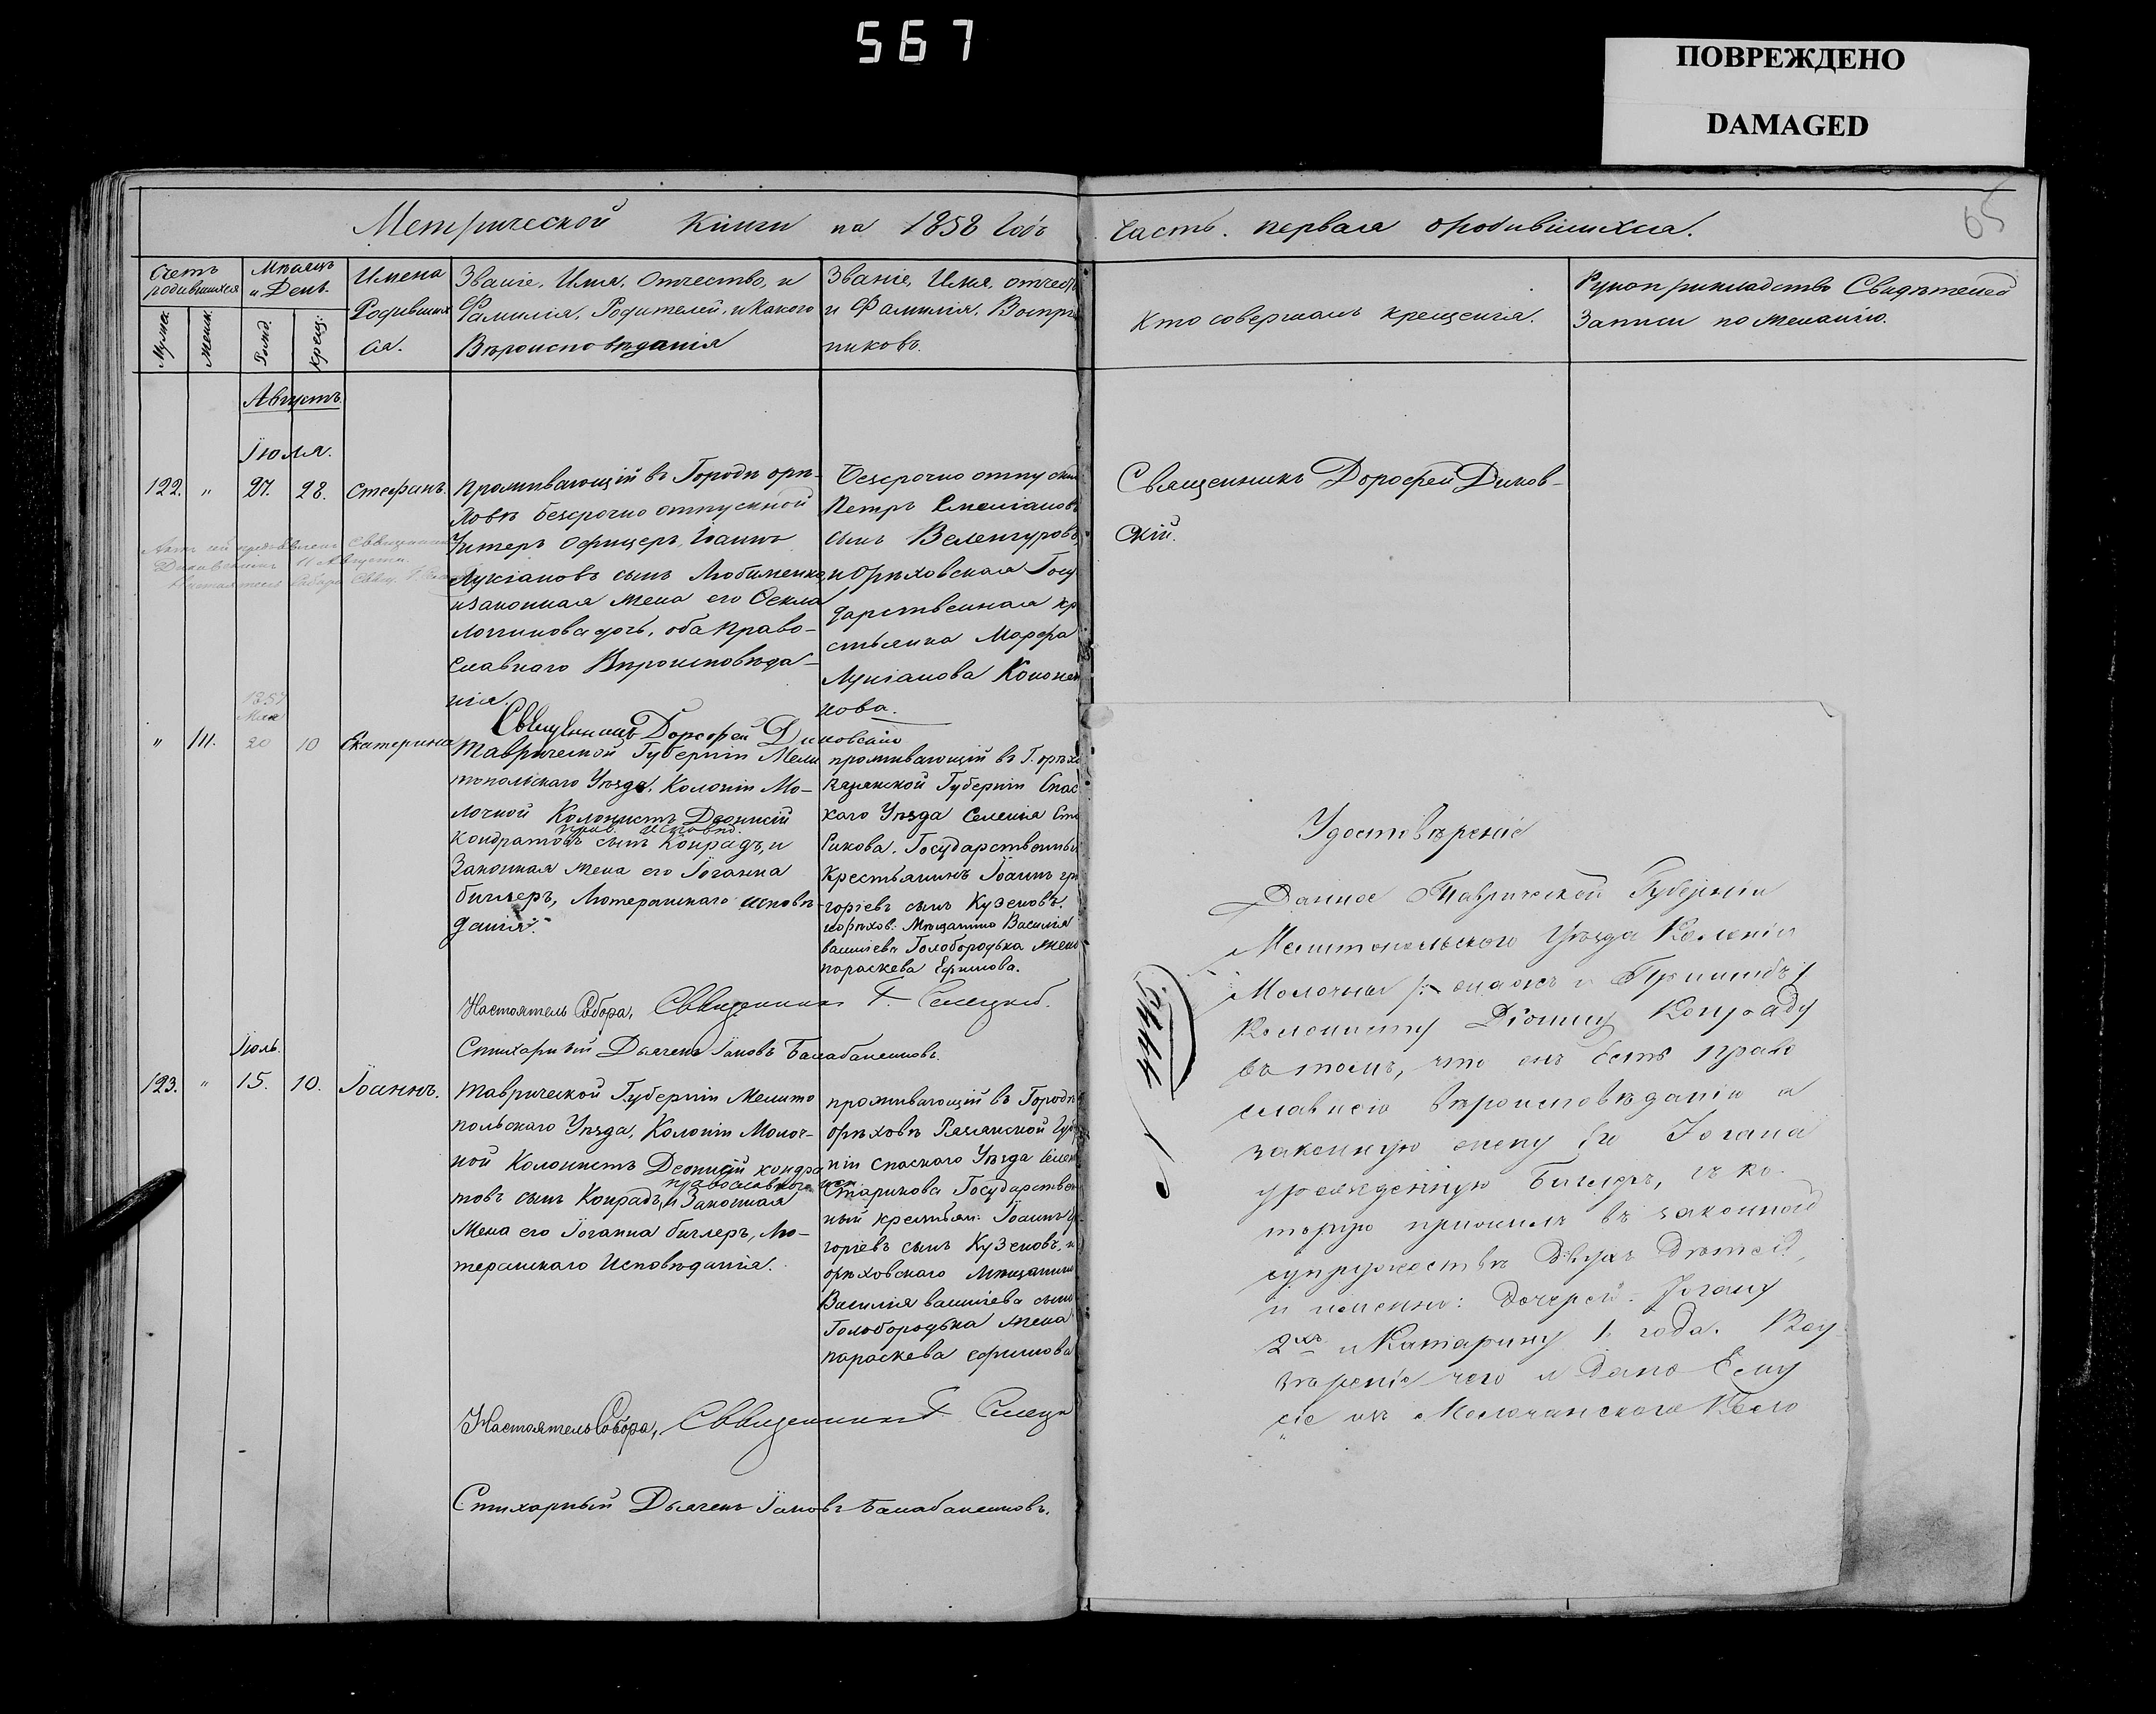 567
ПОВРЕЖДЕНО
DAMAGED
65
Метрической Книги на 1858 Годъ
Часть первая о родившихся.
Счетъ родившихся
Мѣсяцъ и День.
Имена Родивших ся.
Званіе, Имя, Отчество, и
Фамилія, Родителей, и Какого
Вѣроисповѣданія
Званіе, Имя, отчест
и Фамилія, Воспрі
никовъ.
Кто совершалъ крещенія.
Рукоприкладство Свидѣтелей
Записи по желанію.
Мужес.
Женск.
Рожд.
Крещ.
Августъ.
Іюля.
122. " 27. 28. Стефанъ.
Проживающій въ Городѣ орѣ-
ховѣ безсрочно отпускной
Унтеръ Офицеръ, Іоаннъ
Лукіановъ сынъ Любименко,
и законная жена его Ѳекла
Логгинова дочь, оба Право-
славнаго Вѣроисповѣда-
нія.
Безсрочно отпускн
Петръ Емеліановъ
сынъ Веленгуровъ,
и Орѣховская Госу
дарственная кр
стьянка Марфа
Лукіанова Конон
кова.
Священникъ Дорофей Диков-
скій.
Священникъ Дорофей Диковскій
1857
Мая
" 111. 20 10 Екатерина
Таврической Губерніи Мели
топольскаго Уѣзда, Колоніи Мо-
лочной Колонистъ Деонисій
прав. исповѣд.
Кондратовъ сынъ Конрадъ, и
Законная жена его Іоганна
биглеръ, Лютеранскаго исповѣ-
данія.
проживающій въ Г. орѣхо
Рязанской Губерніи Спас
каго Уѣзда Селенія Ста
рикова. Государственны
Крестьянинъ Іоаннъ гри
горіевъ сынъ Кузеновъ.
и орѣхов: Мѣщанина Василія
василіева Голобородька жена
параскева Ефимова.
Настоятель Собора, Священникъ Г. Селецкій.
Стихарный Дьячекъ Іаковъ Балабаненковъ.
Іюль.
123. " 15. 10. Іоаннъ.
Таврической Губерніи Мелито
польскаго Уѣзда, Колоніи Молоч-
ной Колонистъ Деонисій кондра
православнаго исп
товъ сынъ Конрадъ, и Законная
Жена его Іоганна биглеръ, Лю-
теранскаго Исповѣданія.
проживающій въ Городѣ
орѣховѣ Рязанской Губ
ніи Спаскаго Уѣзда Селен
Старикова Государствен
ный крестьян: Іоаннъ гри
горіевъ сынъ Кузеновъ, и
орѣховскаго Мѣщанина
Василія василіева сына
Голобородька жена
параскева ефимова
Настоятель Собора, Священникъ Г. Селецк
Стихарный Дьячекъ Іаковъ Балабаненковъ.
№ 4445.
Удостовѣреніе
Данное Таврической Губерніи
Мелитопольскаго Уѣзда Колоніи
Молочной
Колонисту Діонису Конраду
въ томъ, что онъ есть право
славнаго вѣроисповѣданія и
законную жену его Іогана
урожденную Биглеръ, съ ко-
торою прижилъ въ законной
супружествѣ двухъ дѣтей,
и именно: дочерей: Іогану
2хъ и Катарину 1. года. Въ у
вѣреніе чего и дано Ему
сіе изъ Молочанскаго Коло